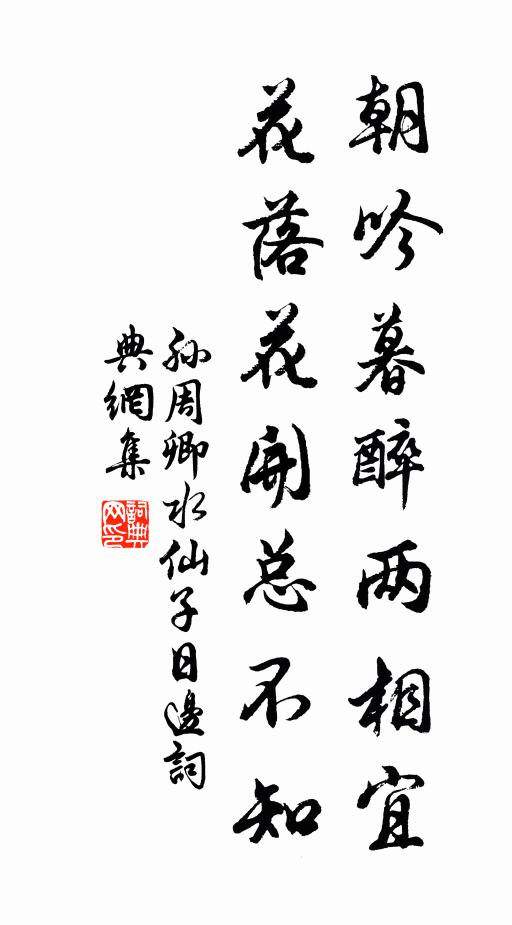 朝吟暮醉两相宜
花落花開总不知
孙周卿水仙子日邊詞
典網集
詞典网印